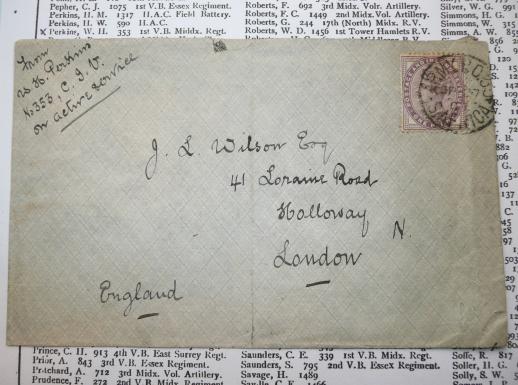 Pepher, C. J. 1075 1st V.B. Essex Regiment
Perkins, H. M. 1317 H.A.C. Field Battery.
Perkins, H. W. 590 H.A.C.
X Perkins, W. H. 353 1st V.B. Middx. Regt.
Roberts, F. 692 3rd Mid. Vol. Artillery.
Roberts, F. C. 1449 2nd Mid. Vol. Artillery.
Roberts, G. 241 17th (North) Mdx. R.V.
Roberts, W. D. 1456 1st Tower Hamlets R.V.
Silver, W. G. 991
Simmons, H. G.
Simmons, H. S.
Simms, W.
From
W. H. Perkins
No 353, C.I.V.
on active service
J. L. Wilson Esq
41 Loraine Road
Holloway N.
London
England
Prince, C. H. 913 4th V.B. East Surrey Regt.
Prior, A. 843 3rd V.B. Essex Regt.
Pritchard, A. 712 3rd Midx. Vol. Artillery.
Prudence, F. 272 2nd V.B. Middx. Regt.
Saunders, C. E. 339 1st V.B. Midx. Regt.
Saunders, S. 795 2nd V.B. Essex Regt.
Savage, H. 1489
Soffe, R. 817
Soller, H. G.
Solly, S. W.